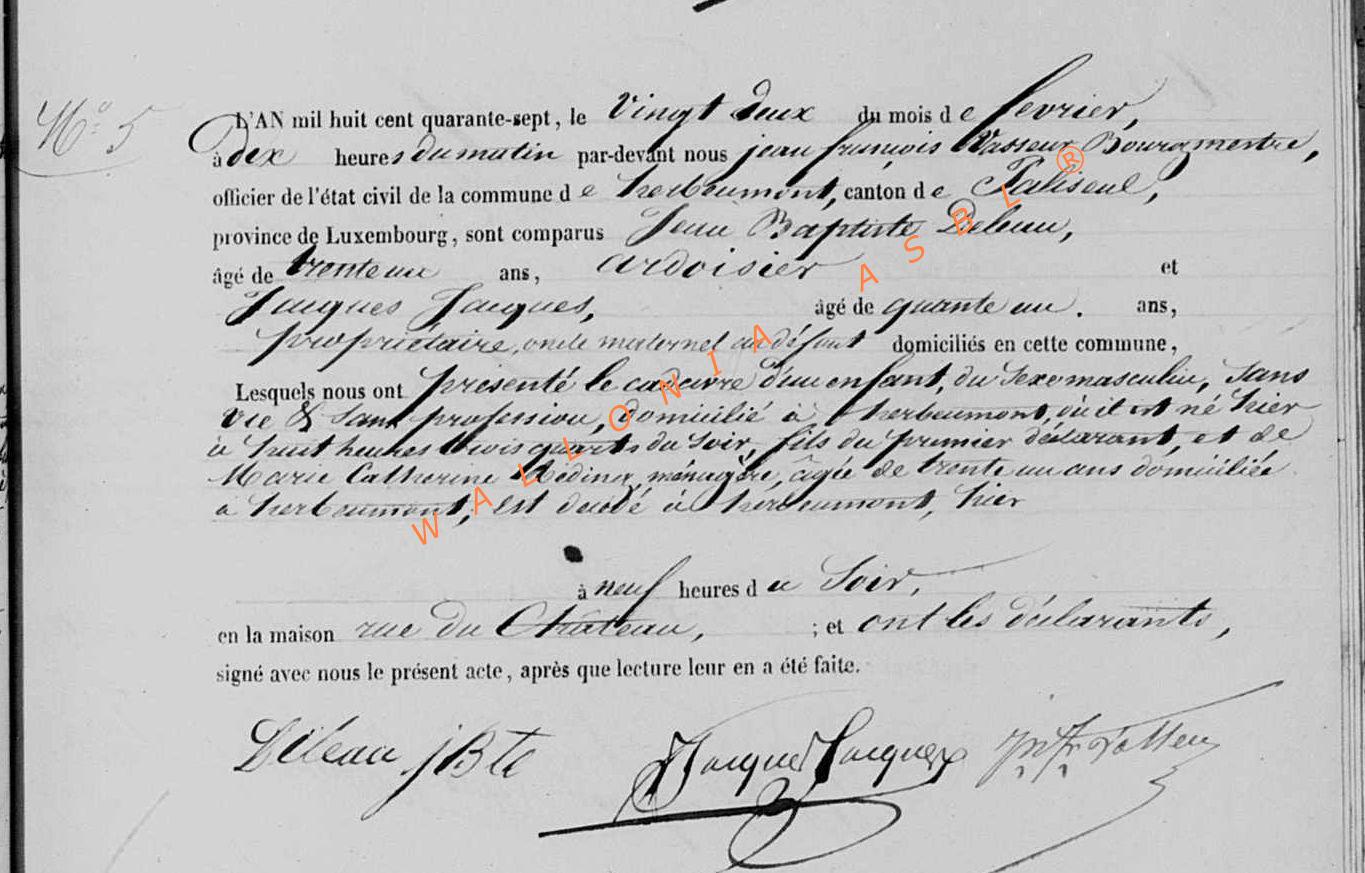 N° 5
L'AN mil huit cent quarante-sept, le Vingt deux du mois de fevrier,
à dix heures du matin par-devant nous jean françois Vasseur Bourgmestre,
officier de l'état civil de la commune de herbeumont, canton de Paliseul,
province de Luxembourg, sont comparus Jean Baptiste Deleau,
âgé de trente un ans, ardoisier et
Jacques Jacques, âgé de quante un. ans,
propriétaire, oncle maternel du défunt domiciliés en cette commune,
Lesquels nous ont présenté le cadavre d'un enfant, du Sexe masculin, Sans
vie & Sans profession, domicilié à herbeumont, où il est né hier
à huit heures trois quarts du Soir, fils du premier déclarant, et de
Marie Catherine ménagère, âgée de trente un ans domiciliée
à herbeumont, Est decedé à herbeumont, hier
à neuf heures du Soir,
en la maison rue du Château, ; et ont les déclarants,
signé avec nous le présent acte, après que lecture leur en a été faite.
Déleau jBte Jacques Jacques
WALLONIA ASBL ®